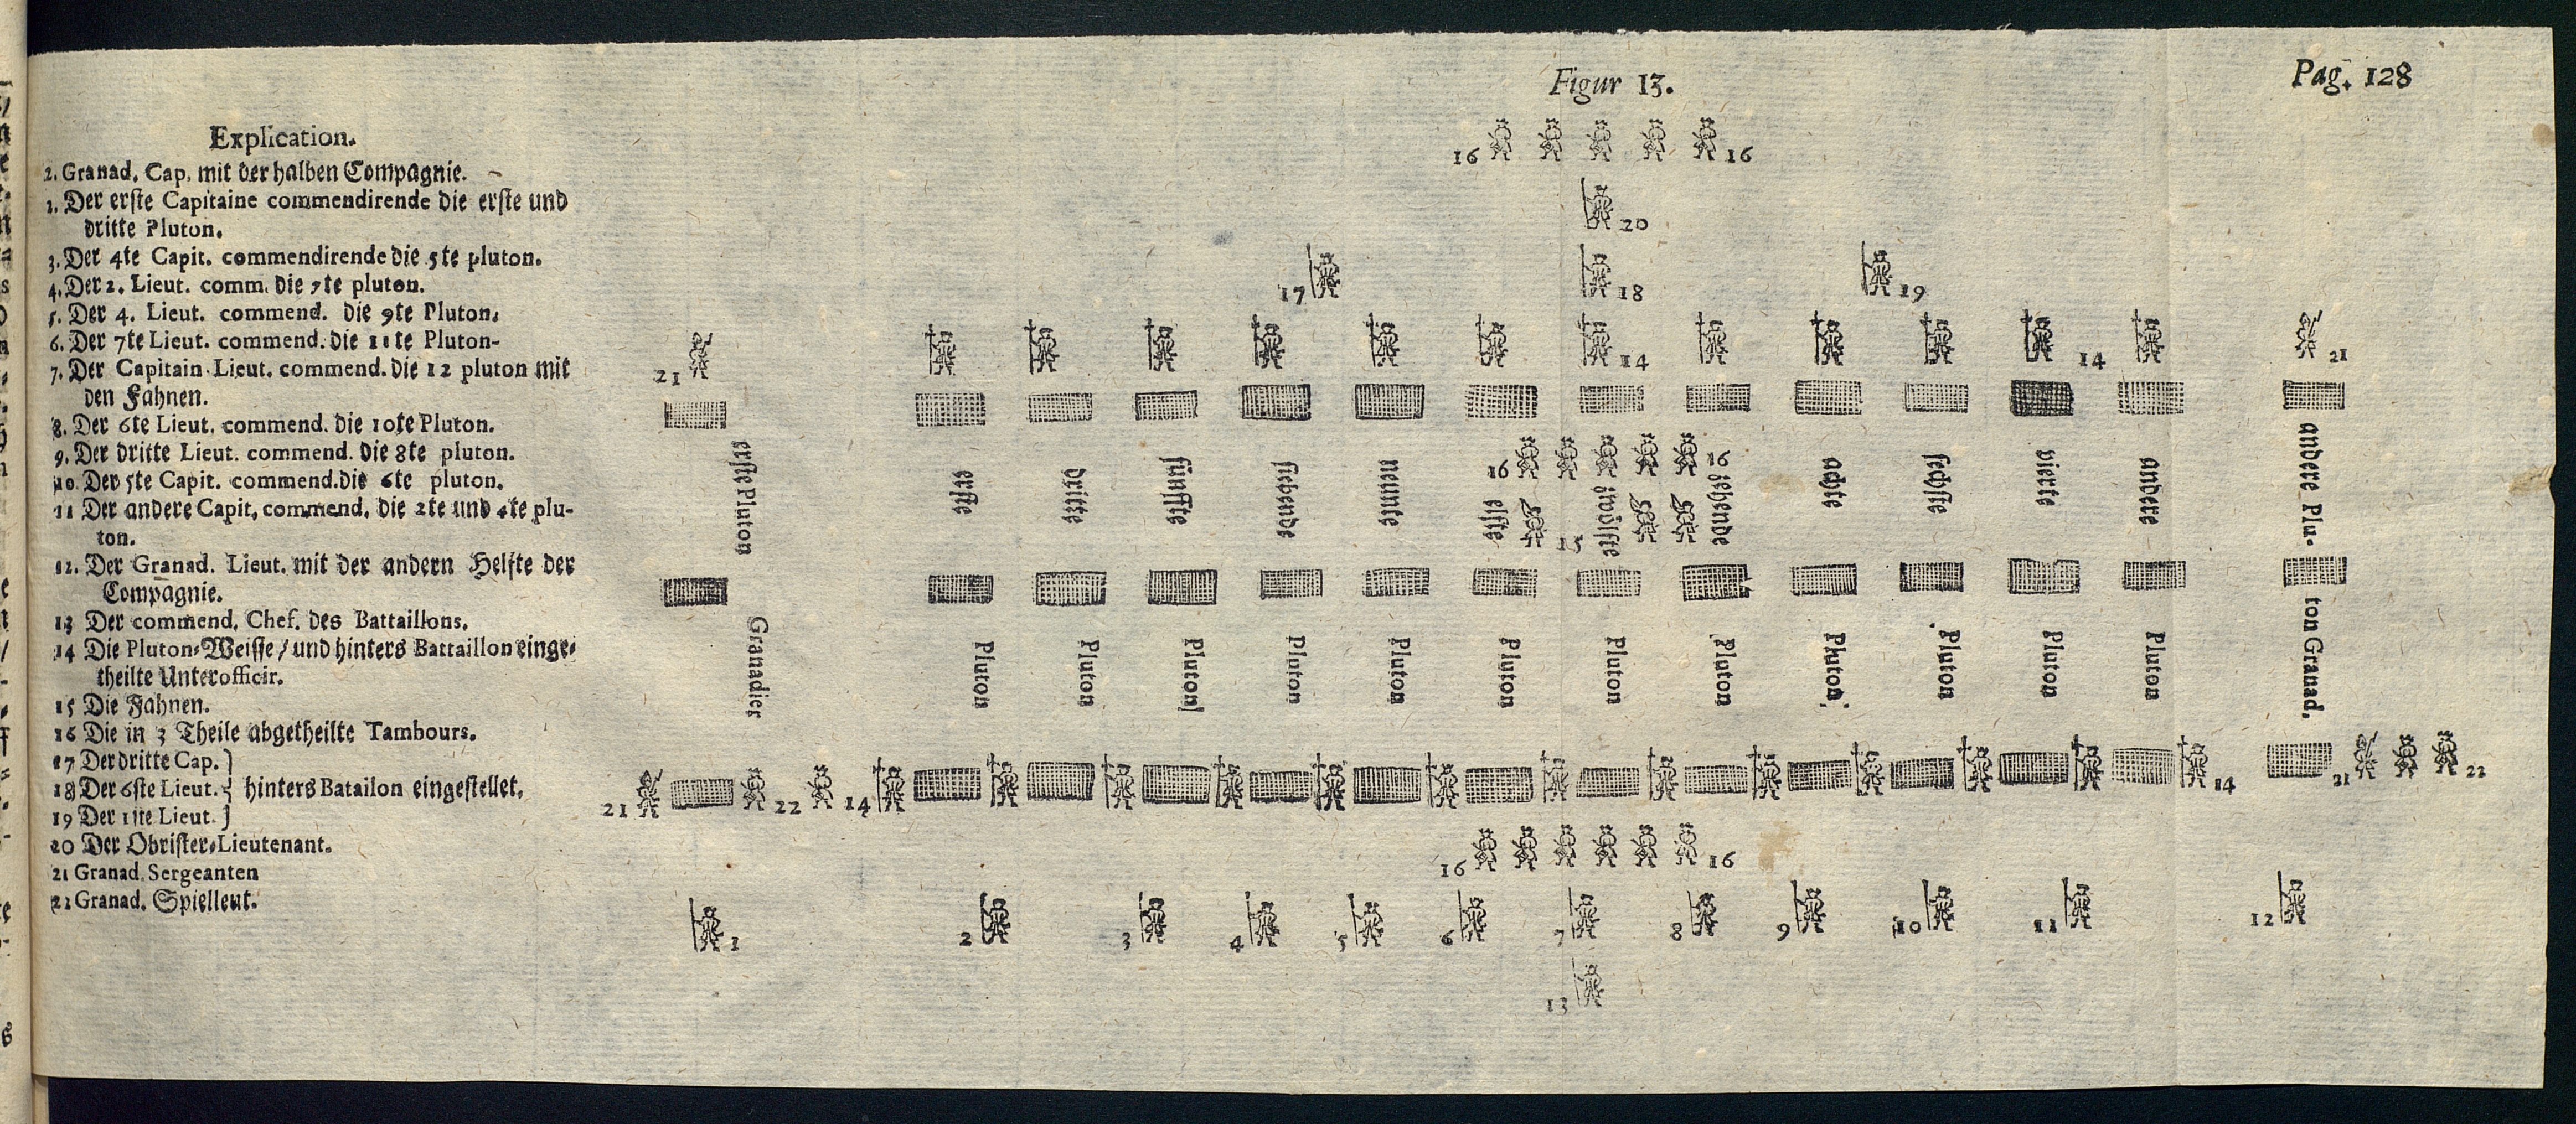 Figur 13.
Pag. 128
Explication.
2. Granad. Cap. mit der halben Compagnie.
2. Der erste Capitaine commendirende die erste und
dritte Pluton.
3. Der 4te Capit. commendirende die 5te pluton.
4. Der 2. Lieut. comm. die 7te pluton.
5. Der 4. Lieut. commend. die 9te Pluton.
6. Der 7te Lieut. commend. die 11te Pluton-
7. Der Capitain-Lieut. commend. die 12 pluton mit
den Fahnen.
8. Der 6te Lieut. commend. die 10te Pluton.
9. Der dritte Lieut. commend. die 8te pluton.
10. Der 5te Capit. commend. die 6te pluton.
11 Der andere Capit, commend. die 2te und 4te plu-
ton.
12. Der Granad. Lieut. mit der andern Helfte der
Compagnie.
13 Der commend. Chef. des Battaillons.
14 Die Pluton-Weisse / und hinters Battaillon einge-
theilte Unterofficir.
15 Die Fahnen.
16 Die in 3 Theile abgetheilte Tambours.
17 Der dritte Cap. }
18 Der 6ste Lieut. } hinters Batailon eingestellet.
19 Der 1ste Lieut. }
20 Der Obrister-Lieutenant.
21 Granad. Sergeanten
22 Granad. Spielleut.
16 16
20
17 18 19
21 14 14 21
16 16
15
erste Pluton
Granadier
erste
Pluton
dritte
Pluton
fünffte
Pluton
siebende
Pluton
neunte
Pluton
elffte
Pluton
zwölffte
Pluton
zehende
Pluton
achte
Pluton
sechste
Pluton
vierte
Pluton
andere
Pluton
andere Plu-
ton Granad.
21 22 14 14 21 22
16 16
1 2 3 4 5 6 7 8 9 10 11 12
13